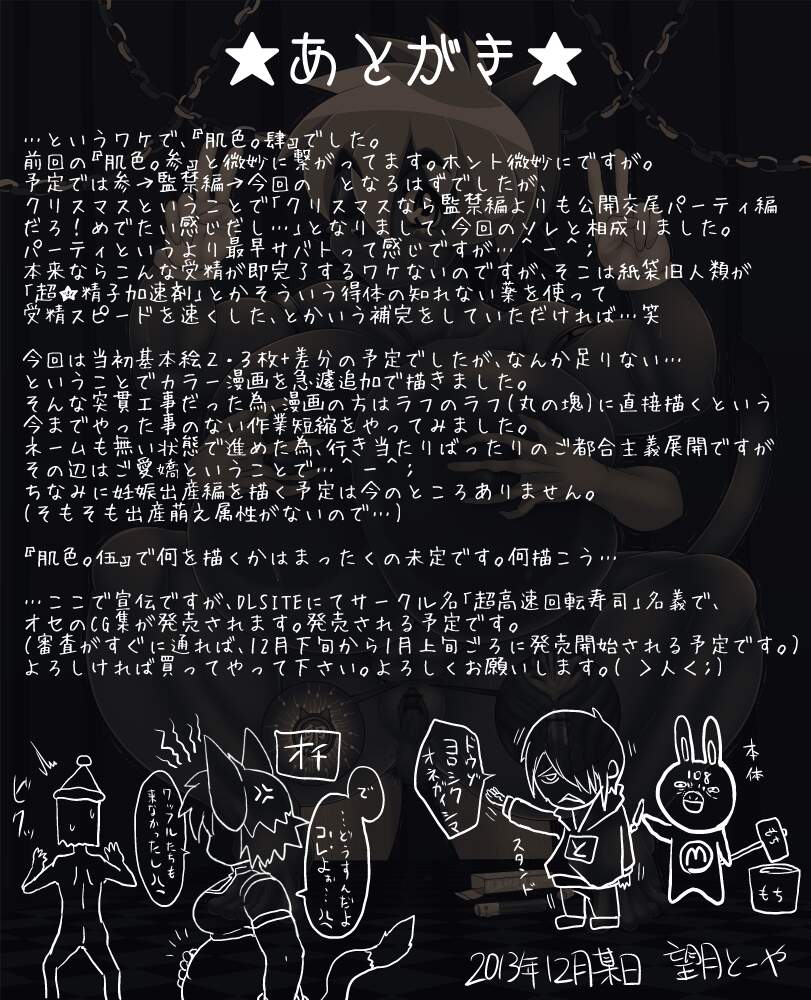 ★あとがき★
…というワケで、『肌色。肆』でした。
前回の『肌色。参』と微妙に繋がってます。ホント微妙にですが。
予定では参→監禁編→今回の　となるはずでしたが、
クリスマスということで「クリスマスなら監禁編よりも公開交尾パーティ編
だろ!めでたい感じだし…」となりまして、今回のソレと相成りました。
パーティというより最早サバトって感じですが…^ー^;
本来ならこんな受精が即完了するワケないのですが、そこは紙袋旧人類が
「超★精子加速剤」とかそういう得体の知れない薬を使って
受精スピードを速くした、とかいう補完をしていただければ…笑
今回は当初基本絵2・3枚+差分の予定でしたが、なんか足りない…
ということでカラー漫画を急遽追加で描きました。
そんな突貫工事だった為、漫画の方はラフのラフ(丸の塊)に直接描くという
今までやった事のない作業短縮をやってみました。
ネームも無い状態で進めた為、行き当たりばったりのご都合主義展開ですが
その辺はご愛嬌ということで…^ー^;
ちなみに妊娠出産編を描く予定は今のところありません。
(そもそも出産萌え属性がないので…)
『肌色。伍』で何を描くかはまったくの未定です。何描こう…
…ここで宣伝ですが、DLSITEにてサークル名「超高速回転寿司」名義で、
オセのCG集が発売されます。発売される予定です。
(審査がすぐに通れば、12月下旬から1月上旬ごろに発売開始される予定です。)
よろしければ買ってやって下さい。よろしくお願いします。( >人<;)
オチ
で
…どうすんだよ
コレよぉ…
ワッフルたちも
来なかったし
ビクッ
ドウゾ
ヨロシク
オネガイシマ
スタンド
と
本体
108
M
もち
2013年12月某日 望月とーや